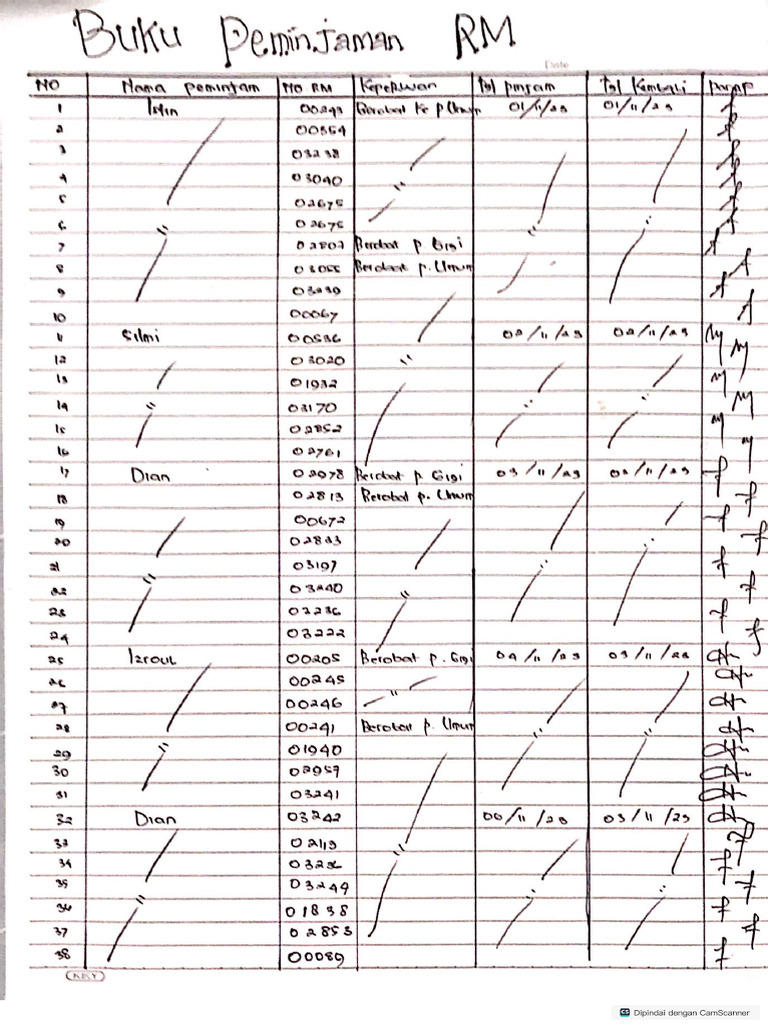 Buku Peminjaman RM
Date
NO Nama peminjam NO RM Keperluan Tgl pinjam Tgl Kembali paraf
1 Isfin 00243 Berobat ke p.Umum 01/11/23 01/11/23
2 00554
3 03238
4 〃 03040 〃
5 02675
6 〃 02675 〃 〃
7 02802 Berobat p. Gigi
8 03055 Berobat p. Umum
9 03239
10 00067
11 Silmi 00536 02/11/23 02/11/23
12 03020 〃
13 01932
14 〃 03170 〃 〃
15 02852
16 02761
17 Dian 02978 Berobat p. Gigi 03/11/23
18 02813 Berobat p. Umum
19 00672
20 02833 〃
21 03197 〃
22 〃 03240 〃
23 03236
24 03222
25 Izroul 00205 Berobat p. Gigi
26 00245 〃
27 00246
28 00241 Berobat p. Umum 〃 〃
29 〃 01940
30 02959
31 03241
32 Dian 03242
33 02113 〃
34
35 03249 〃 〃
36 〃 01838
37 02853
38 00089
KKY
CS Dipindai dengan CamScanner